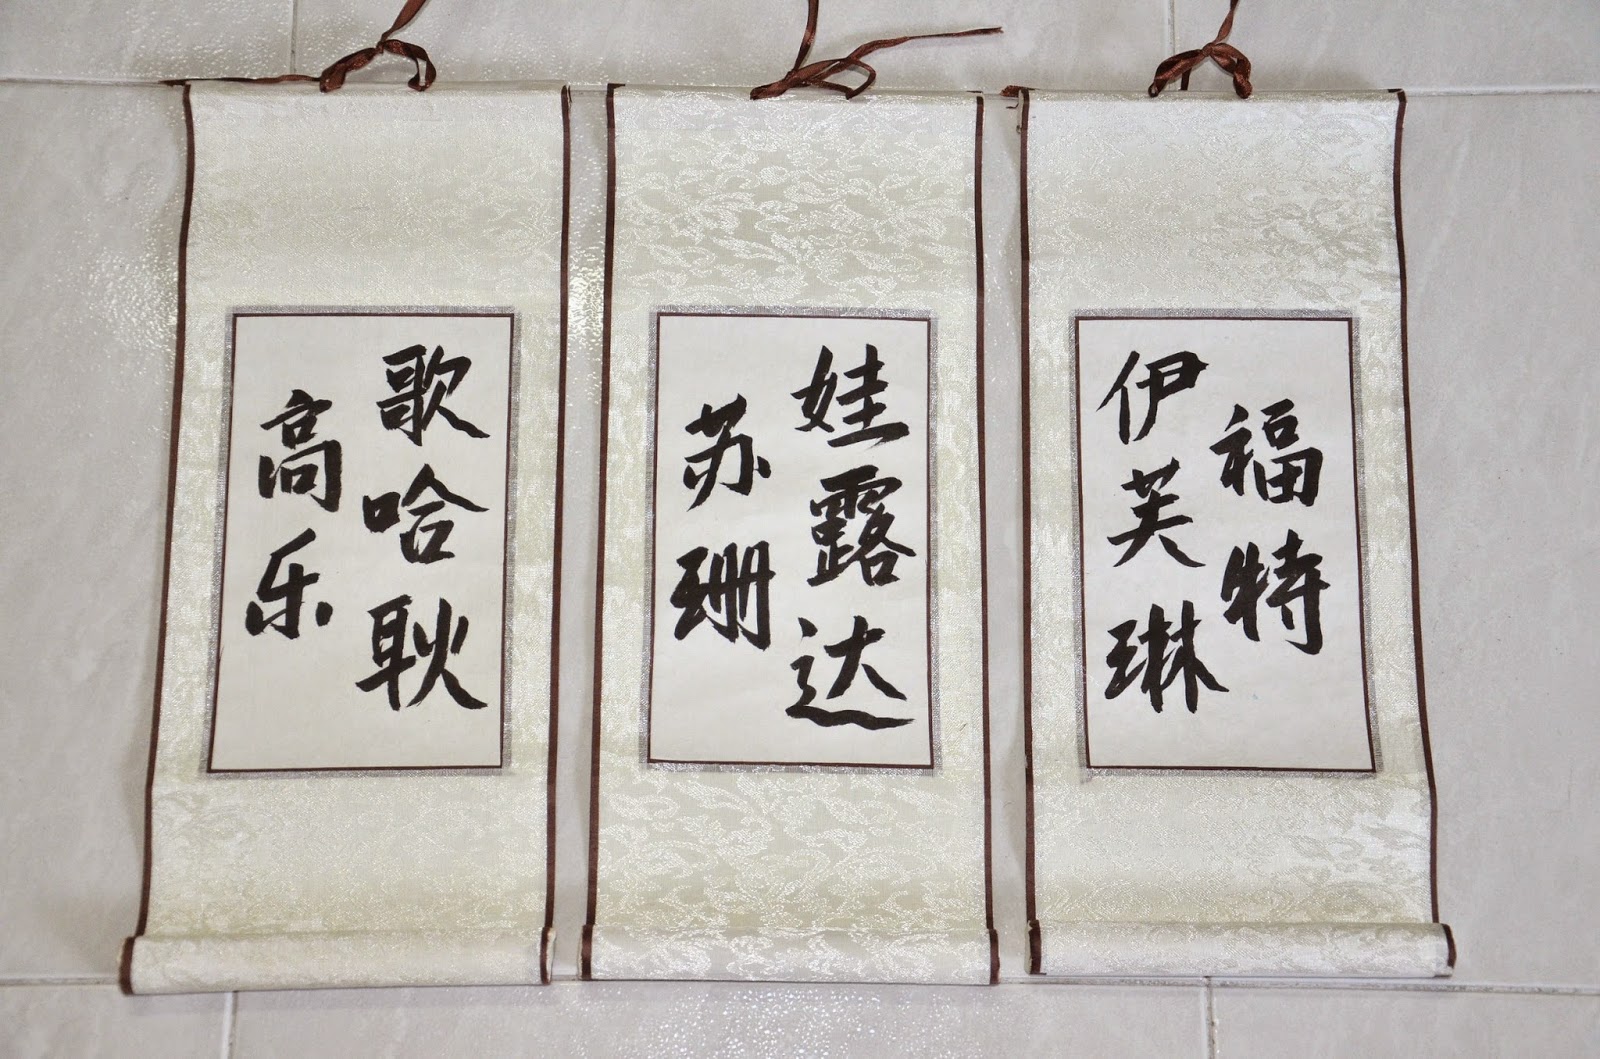 高乐
歌哈耿
苏珊
娃露达
伊芙琳
福特